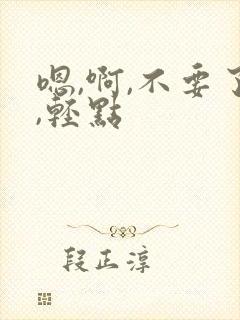 嗯,啊,不要了
,輕點
段正淳